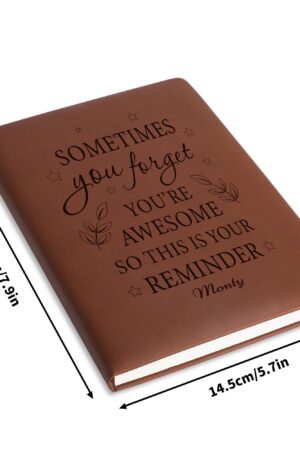 SOMETIMES
you forget
YOU'RE
AWESOME
SO THIS IS YOUR
REMINDER
Monty
/7.9in
14.5cm/5.7in